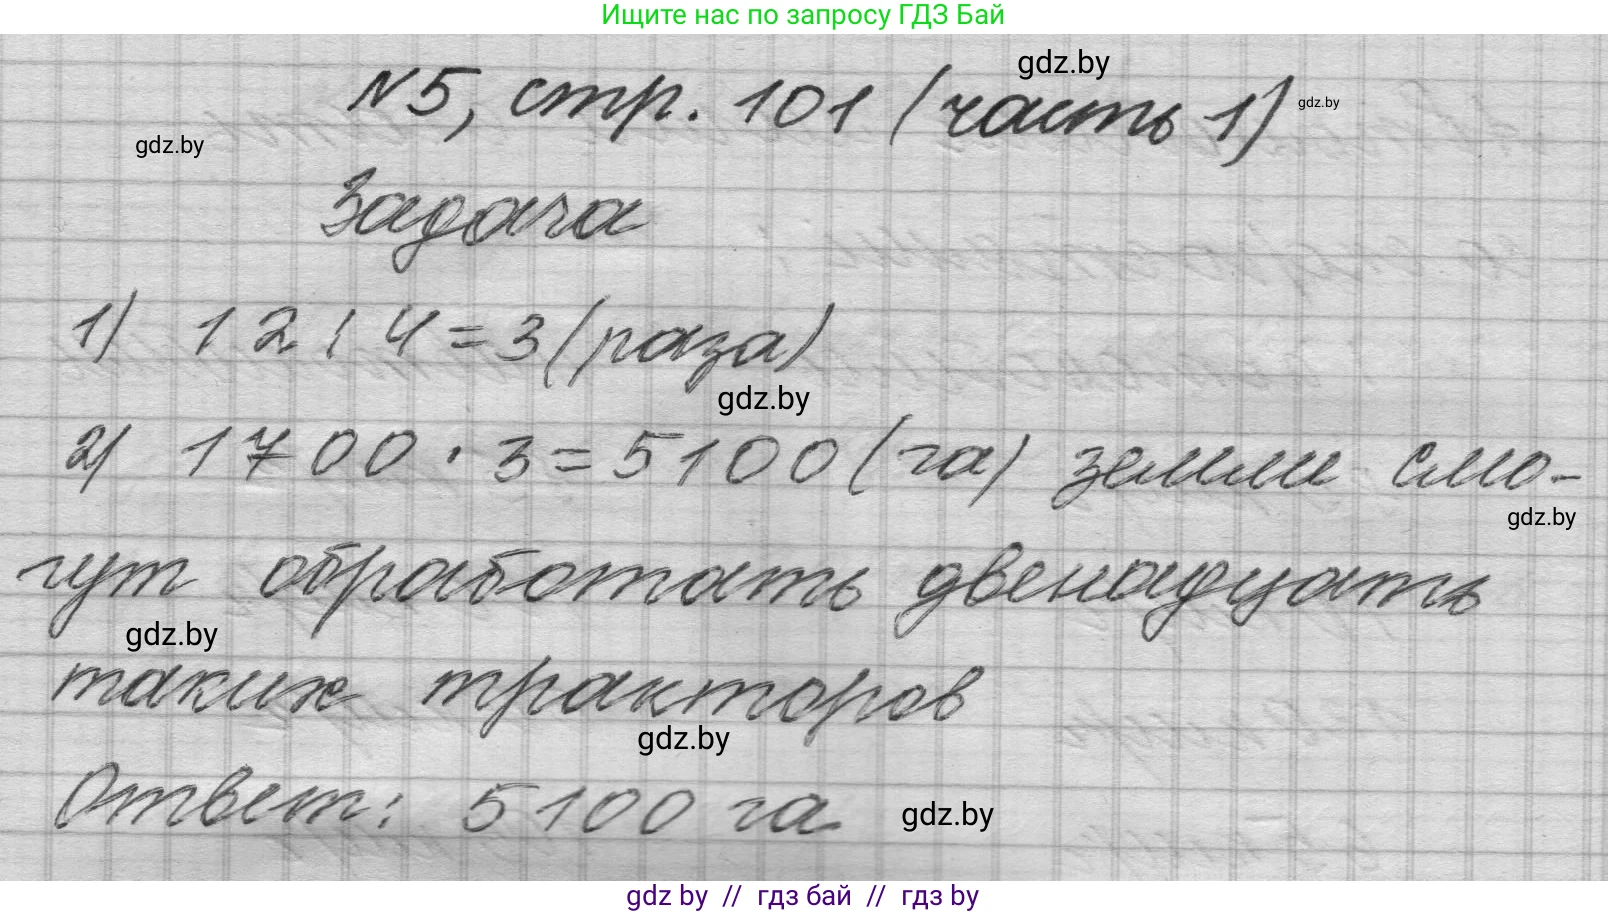 Ищите нас по запросу ГДЗ Бай
gdz.by
№5, стр. 101 (часть 1)
gdz.by
gdz.by
Задача
1) 12 : 4 = 3 (раза)
gdz.by
2) 1700 · 3 = 5100 (га) земли смо-
gdz.by
гут обработать двенадцать
gdz.by
таких тракторов
gdz.by
Ответ: 5100 га
gdz.by
gdz by // гдз бай // gdz by